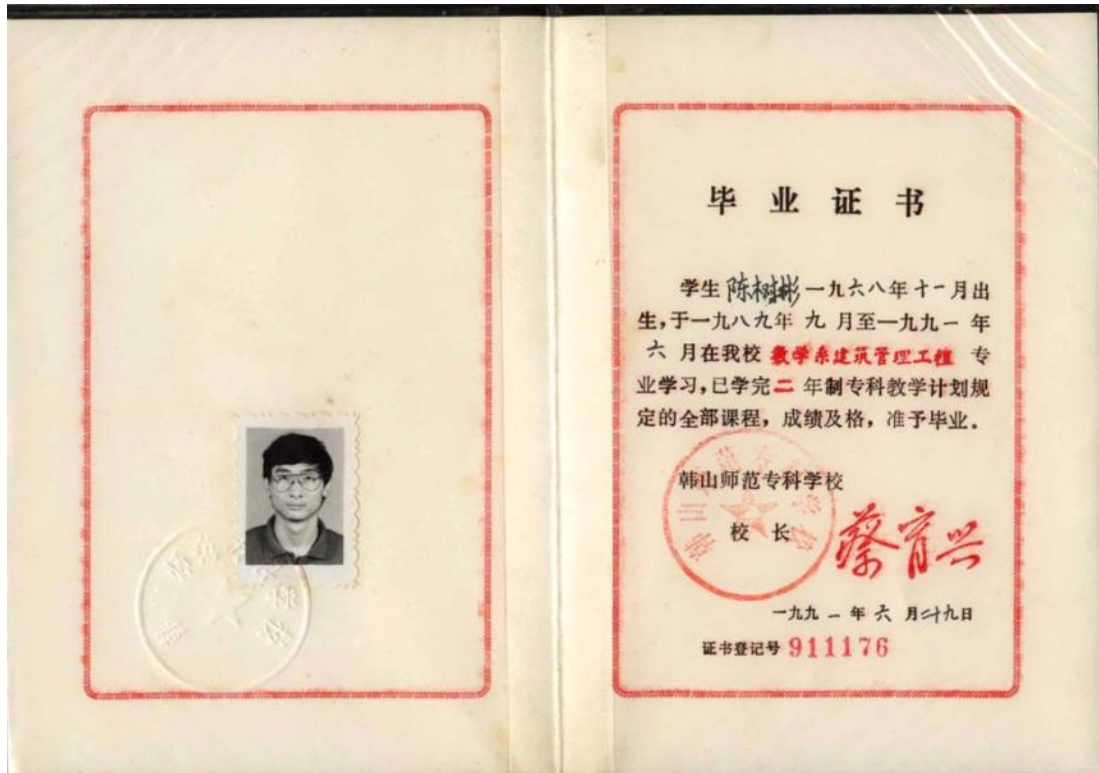 毕业证书
学生 陈树彬 一九六八年十一月出
生,于一九八九年 九 月至一九九一 年
六 月在我校 数学系建筑管理工程 专
业学习,已学完二 年制专科教学计划规
定的全部课程，成绩及格，准予毕业。
韩山师范专科学校
校 长 蔡育兴
一九九一年六月二十九日
证书登记号 911176